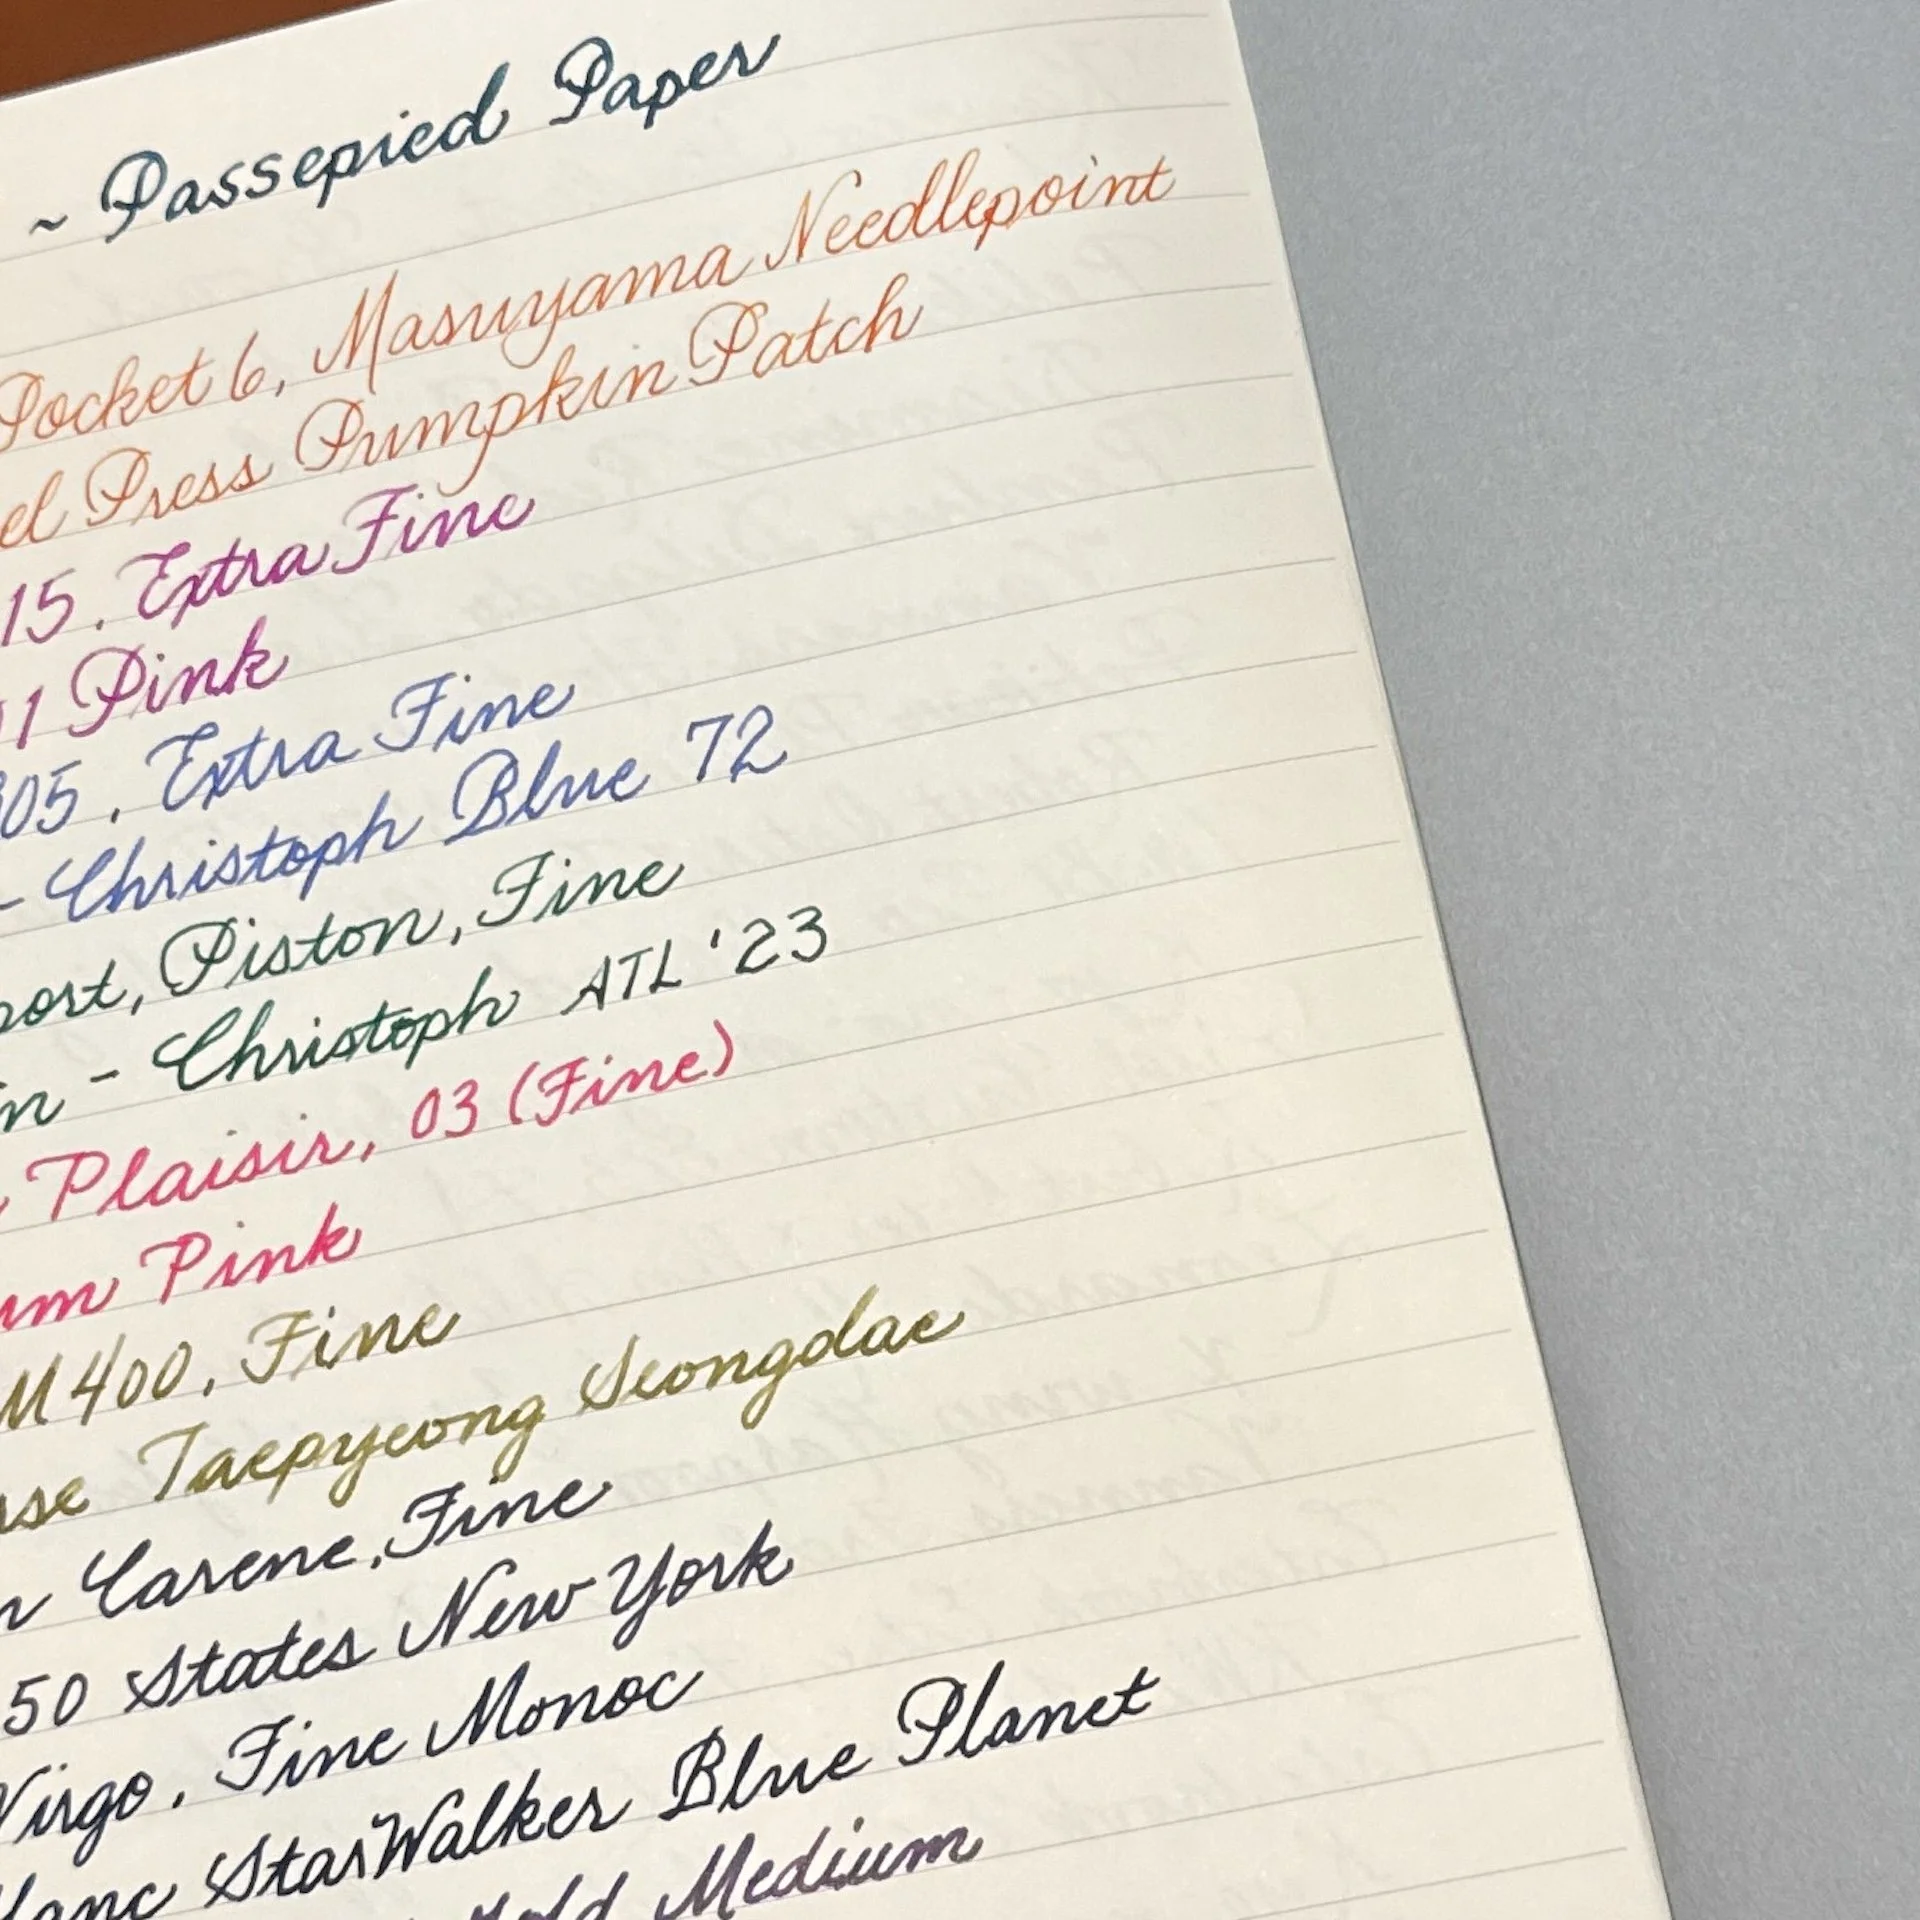 ~ Passepied Paper
Pocket 6, Masuyama Needlepoint
el Press Pumpkin Patch
15. Extra Fine
1 Pink
805. Extra Fine
- Christoph Blue 72
port, Piston, Fine
n - Christoph ATL '23
Plaisir, 03 (Fine)
um Pink
M400, Fine
se Taepyeong Seongdae
n Carene, Fine
50 States New York
Virgo, Fine Monoc
lanc StarWalker Blue Planet
Gold Medium